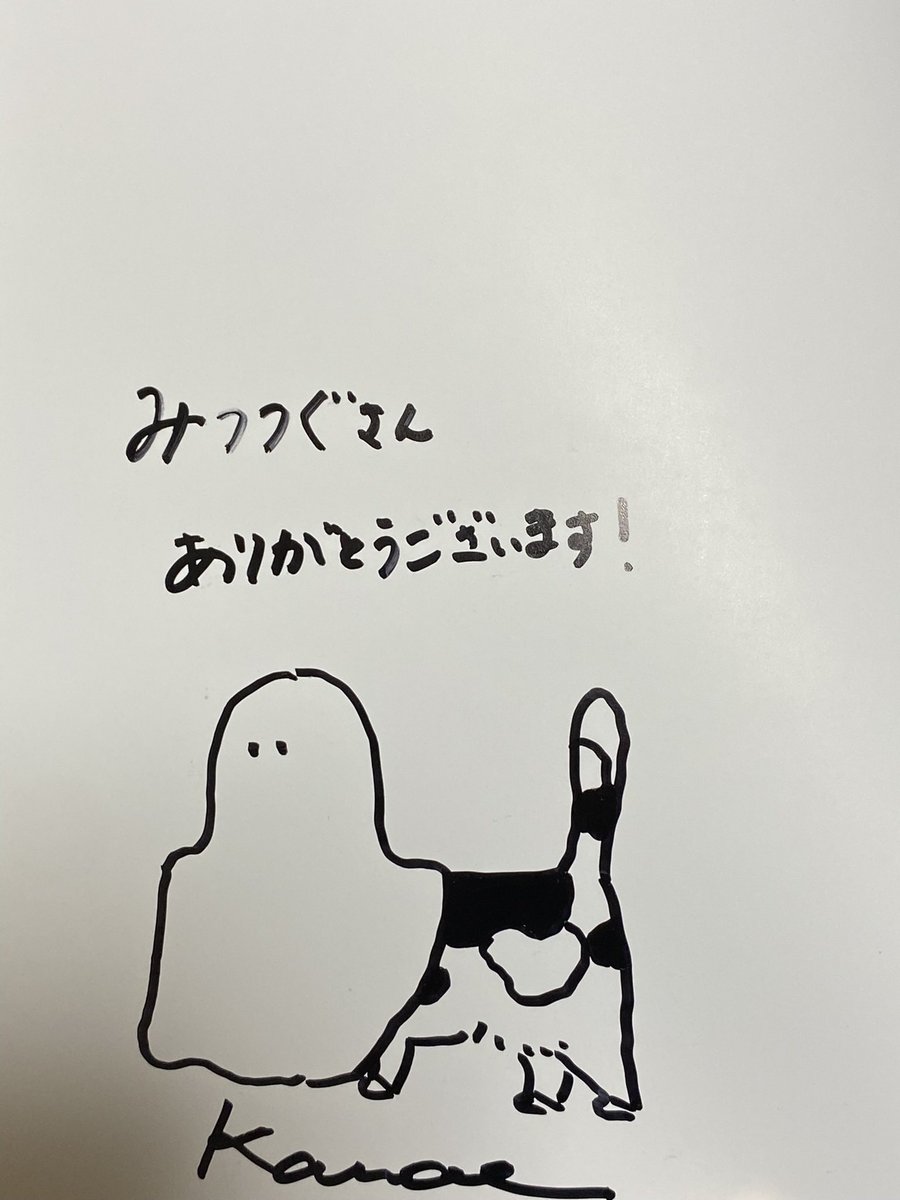 みっつぐさん
ありがとうございます!
Kanae